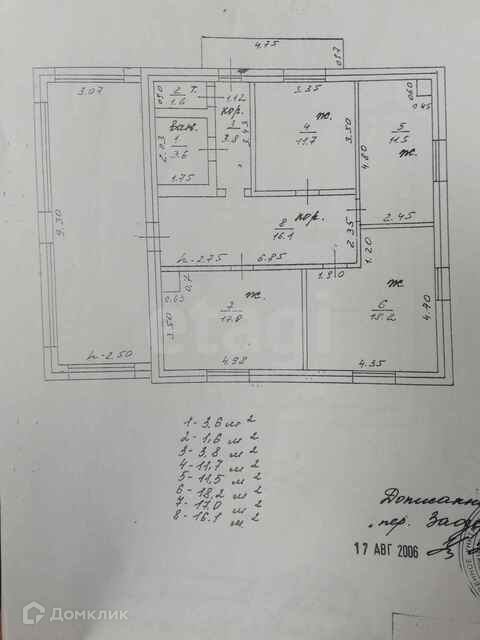 4.75
0.57
3.07
0.90
2 т.
1.6
1.12
кор.
3
3.8
3.43
3.35
ж.
4
11.7
3.50
0.90
0.45
5
11.5
ж.
4.80
2.45
ван.
1
3.6
2.03
1.75
9.30
8 кор.
16.1
2.35
1.20
h-2.75
6.85
1.90
0.65
3.50
7 ж.
17.0
ж
6
18.2
4.70
h-2.50
4.98
4.35
etagi
1- 3.6 м2
2- 1,6 м2
3- 3.8 м2
4- 11,7 м2
5- 11,5 м2
6- 18,2 м2
7- 17.0 м2
8- 16.1 м2
пер.
17 АВГ 2006
Домклик